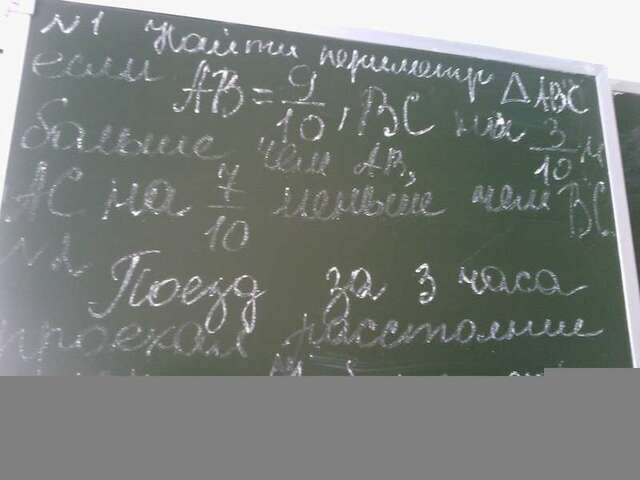 N1 Найти периметр △ABC
если AB = 9/10, BC на 3/10 м
больше чем AB,
AC на 7/10 меньше чем BC
N2
Поезд за 3 часа
проехал расстояние